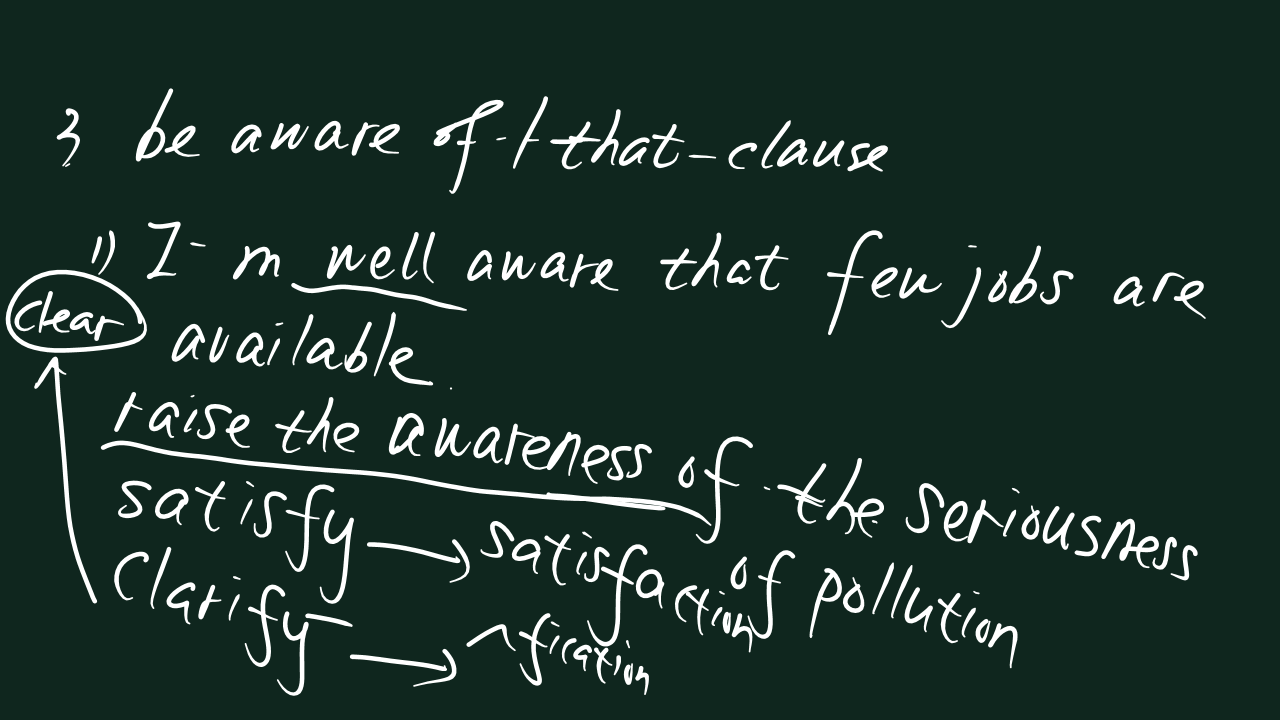 3 be aware of / that-clause
1) I'm well aware that few jobs are
clear
available.
raise the awareness of the seriousness
of pollution
satisfy → satisfaction
clarify → ~fication